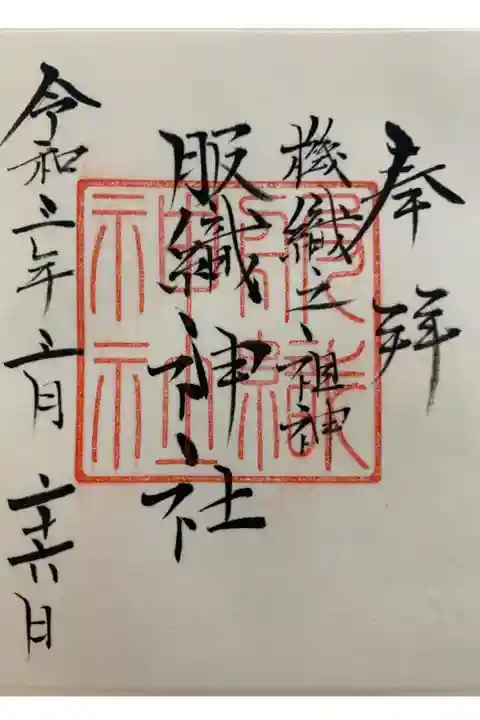 奉拝
機織之祖神
服織神社
令和三年三月二十六日